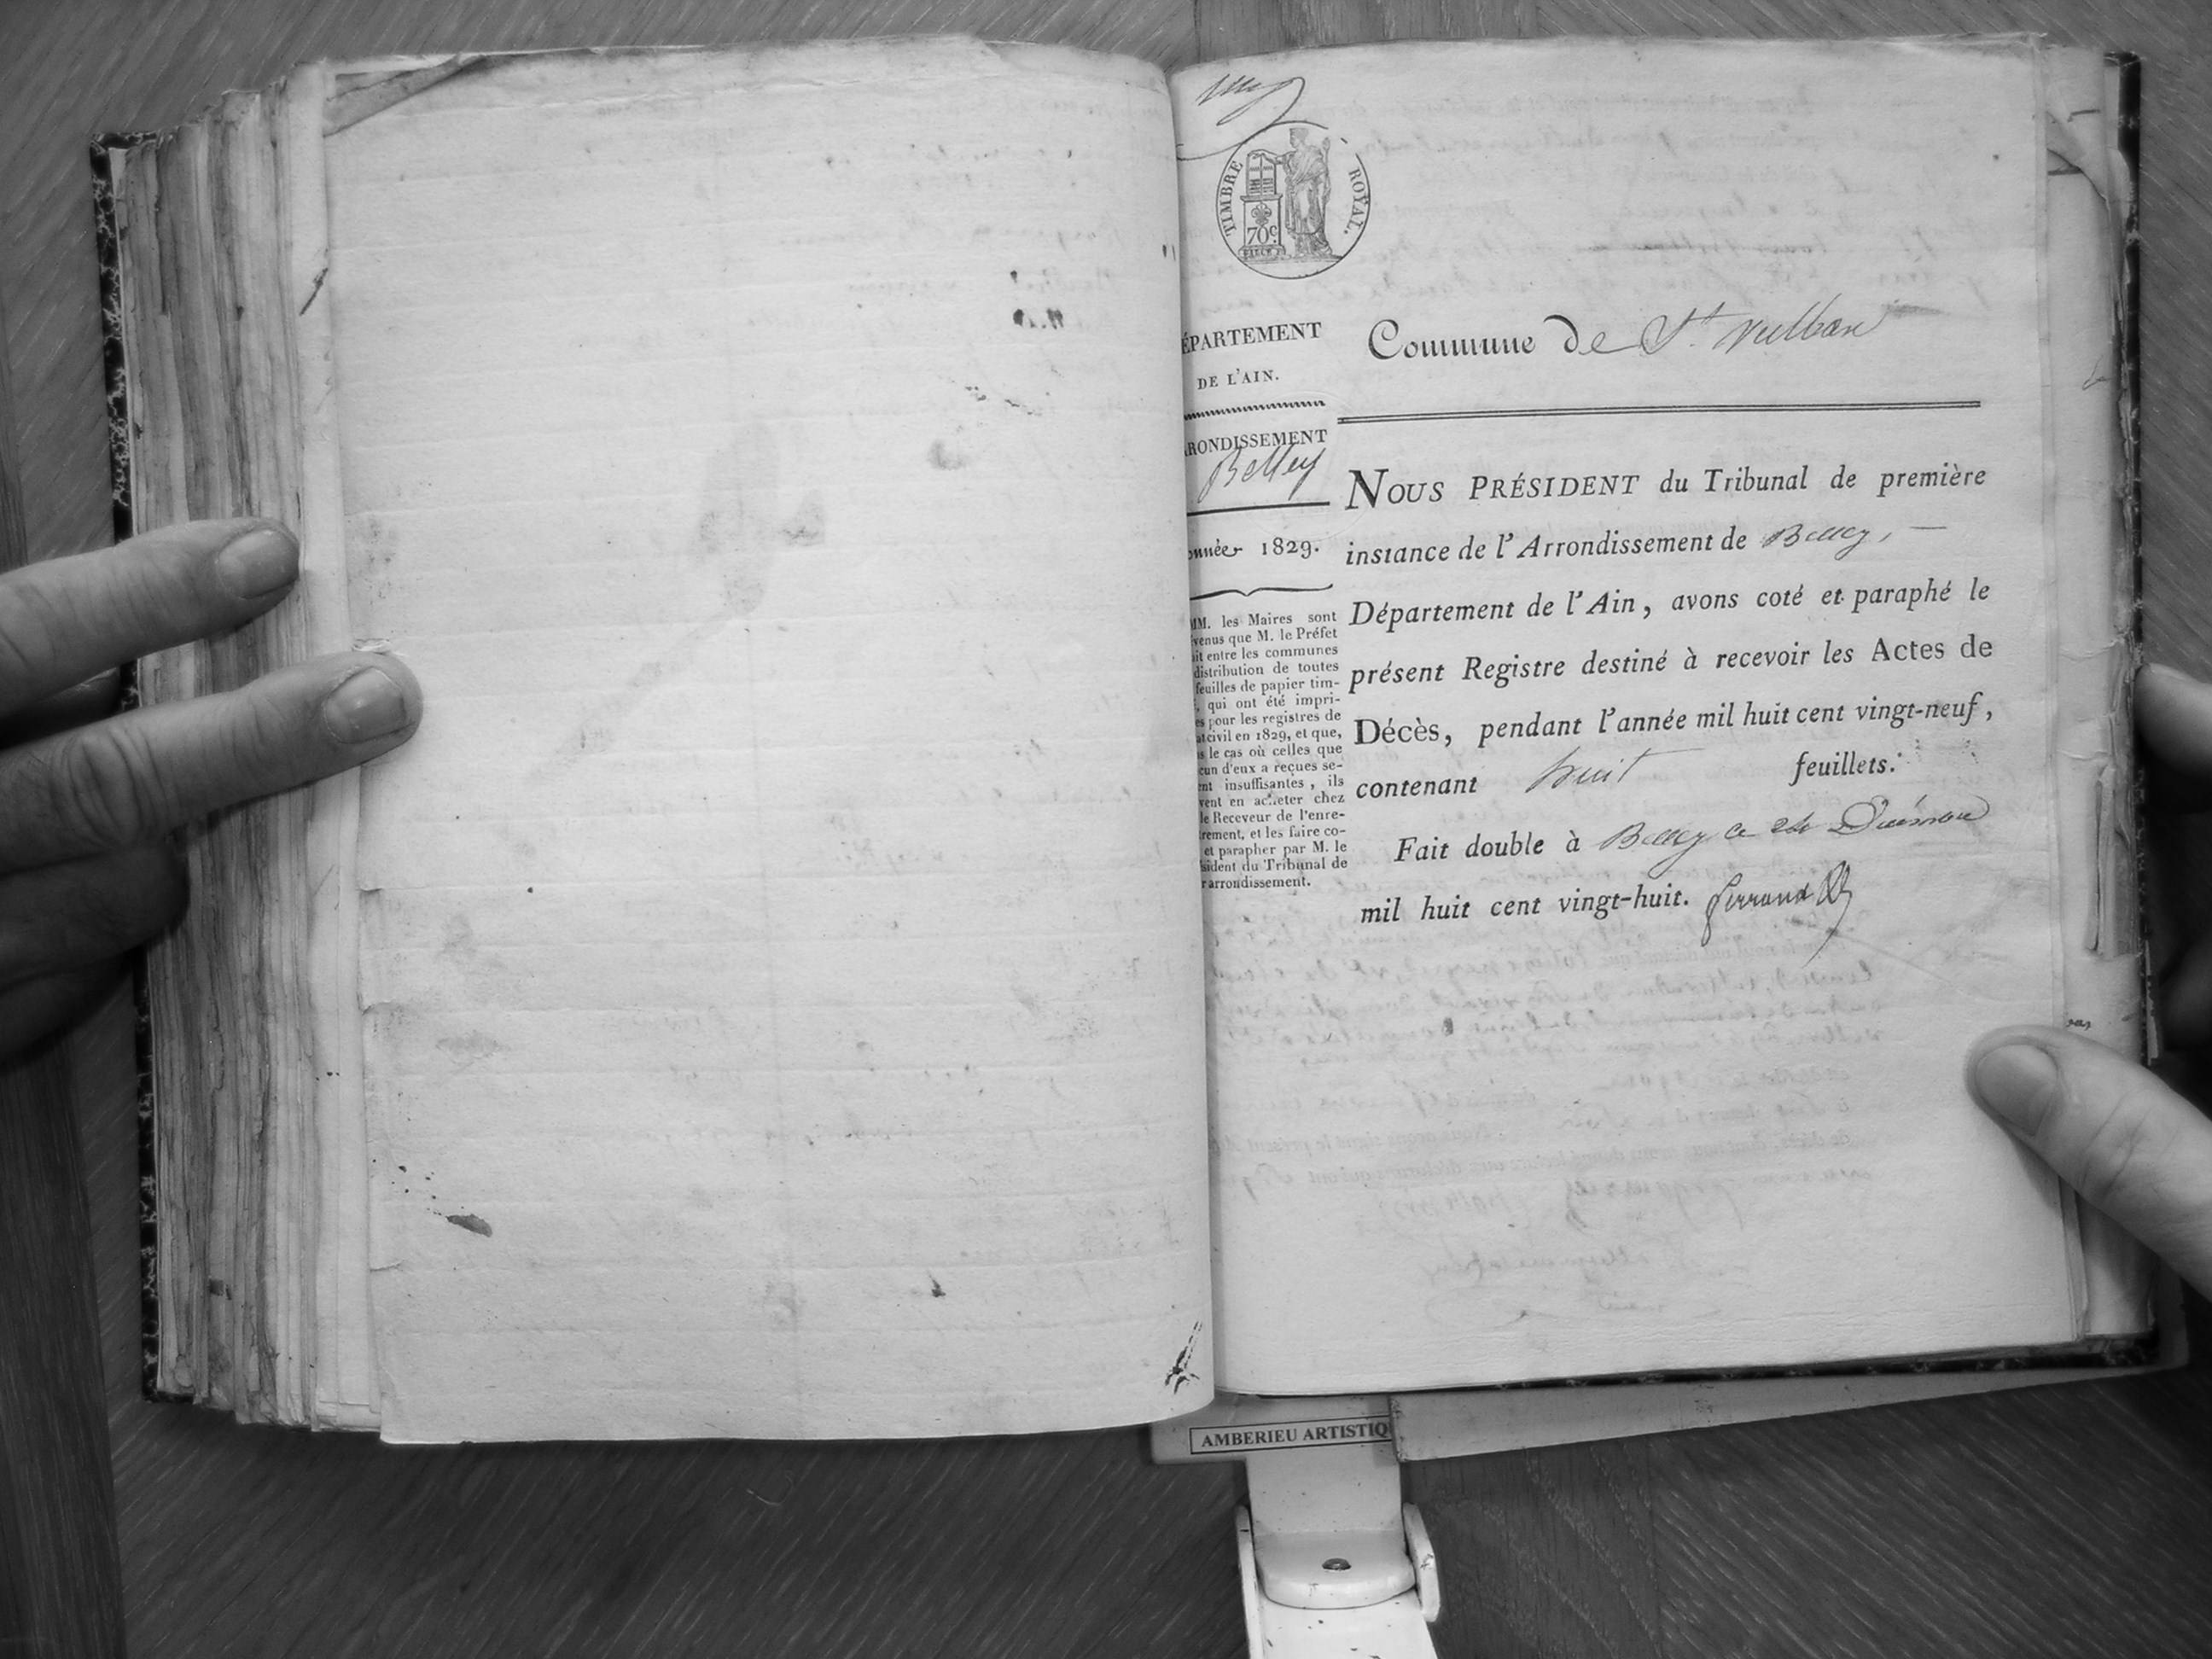 TIMBRE ROYAL.
70c.
DÉPARTEMENT
DE L'AIN.
ARRONDISSEMENT
Belley
année 1829.
MM. les Maires sont
venus que M. le Préfet
it entre les communes
distribution de toutes
feuilles de papier tim-
, qui ont été impri-
es pour les registres de
at civil en 1829, et que,
s le cas où celles que
cun d'eux a reçues se-
ent insuffisantes, ils
vent en acheter chez
le Receveur de l'enre-
trement, et les faire co-
et parapher par M. le
sident du Tribunal de
r arrondissement.
Commune de St. Vulban
NOUS PRÉSIDENT du Tribunal de première
instance de l'Arrondissement de Belley,
Département de l'Ain, avons coté et paraphé le
présent Registre destiné à recevoir les Actes de
Décès, pendant l'année mil huit cent vingt-neuf,
contenant huit feuillets.
Fait double à Belley ce
mil huit cent vingt-huit. Ferrand
AMBERIEU ARTISTIQ